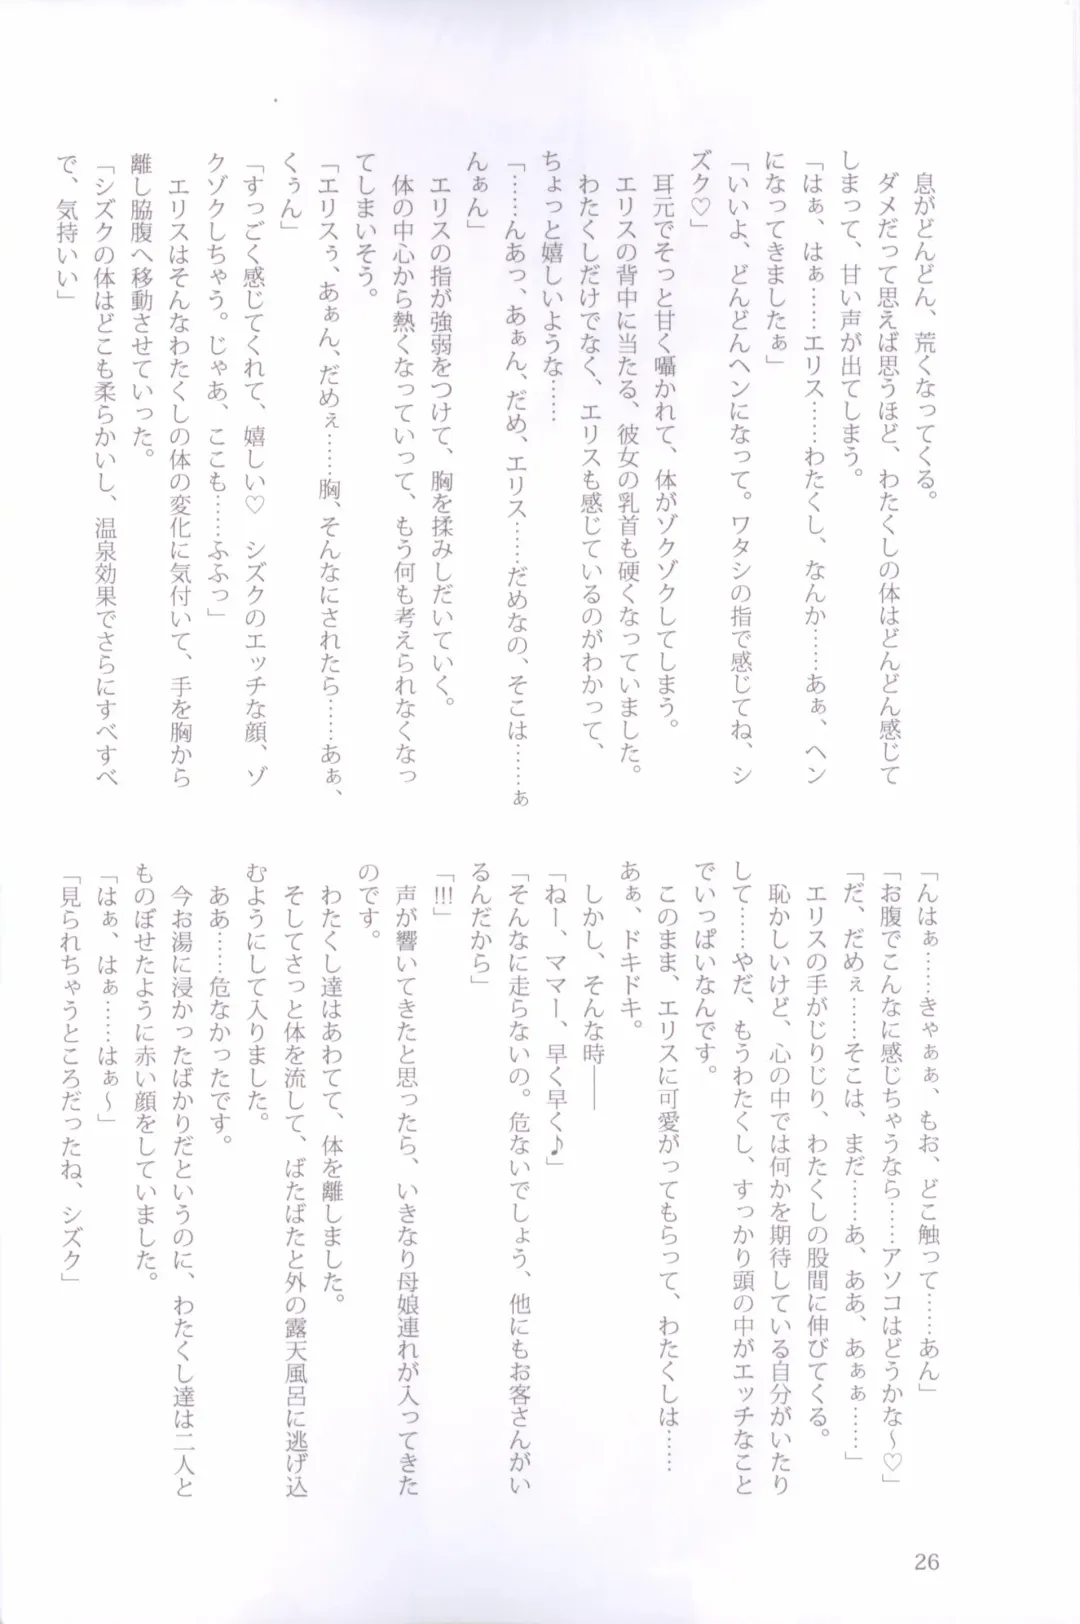 息がどんどん、荒くなってくる。
ダメだって思えば思うほど、わたくしの体はどんどん感じて
しまって、甘い声が出てしまう。
「はぁ、はぁ……エリス……わたくし、なんか……あぁ、ヘン
になってきましたぁ」
「いいよ、どんどんヘンになって。ワタシの指で感じてね、シ
ズク♡」
耳元でそっと甘く囁かれて、体がゾクゾクしてしまう。
エリスの背中に当たる、彼女の乳首も硬くなっていました。
わたくしだけでなく、エリスも感じているのがわかって、
ちょっと嬉しいような……
「……んあっ、あぁん、だめ、エリス……だめなの、そこは……ぁ
んぁん」
エリスの指が強弱をつけて、胸を揉みしだいていく。
体の中心から熱くなっていって、もう何も考えられなくなっ
てしまいそう。
「エリスぅ、あぁん、だめぇ……胸、そんなにされたら……あぁ、
くぅん」
「すっごく感じてくれて、嬉しい♡　シズクのエッチな顔、ゾ
クゾクしちゃう。じゃあ、ここも……ふふっ」
エリスはそんなわたくしの体の変化に気付いて、手を胸から
離し脇腹へ移動させていった。
「シズクの体はどこも柔らかいし、温泉効果でさらにすべすべ
で、気持いい」
「んはぁ……きゃぁぁ、もお、どこ触って……あん」
「お腹でこんなに感じちゃうなら……アソコはどうかな～♡」
「だ、だめぇ……そこは、まだ……あ、ああ、あぁぁ……」
エリスの手がじりじり、わたくしの股間に伸びてくる。
恥かしいけど、心の中では何かを期待している自分がいたり
して……やだ、もうわたくし、すっかり頭の中がエッチなこと
でいっぱいなんです。
このまま、エリスに可愛がってもらって、わたくしは……
あぁ、ドキドキ。
しかし、そんな時――
「ねー、ママー、早く早く♪」
「そんなに走らないの。危ないでしょう、他にもお客さんがい
るんだから」
「!!!」
声が響いてきたと思ったら、いきなり母娘連れが入ってきた
のです。
わたくし達はあわてて、体を離しました。
そしてさっと体を流して、ばたばたと外の露天風呂に逃げ込
むようにして入りました。
ああ……危なかったです。
今お湯に浸かったばかりだというのに、わたくし達は二人と
ものぼせたように赤い顔をしていました。
「はぁ、はぁ……はぁ～」
「見られちゃうところだったね、シズク」
26